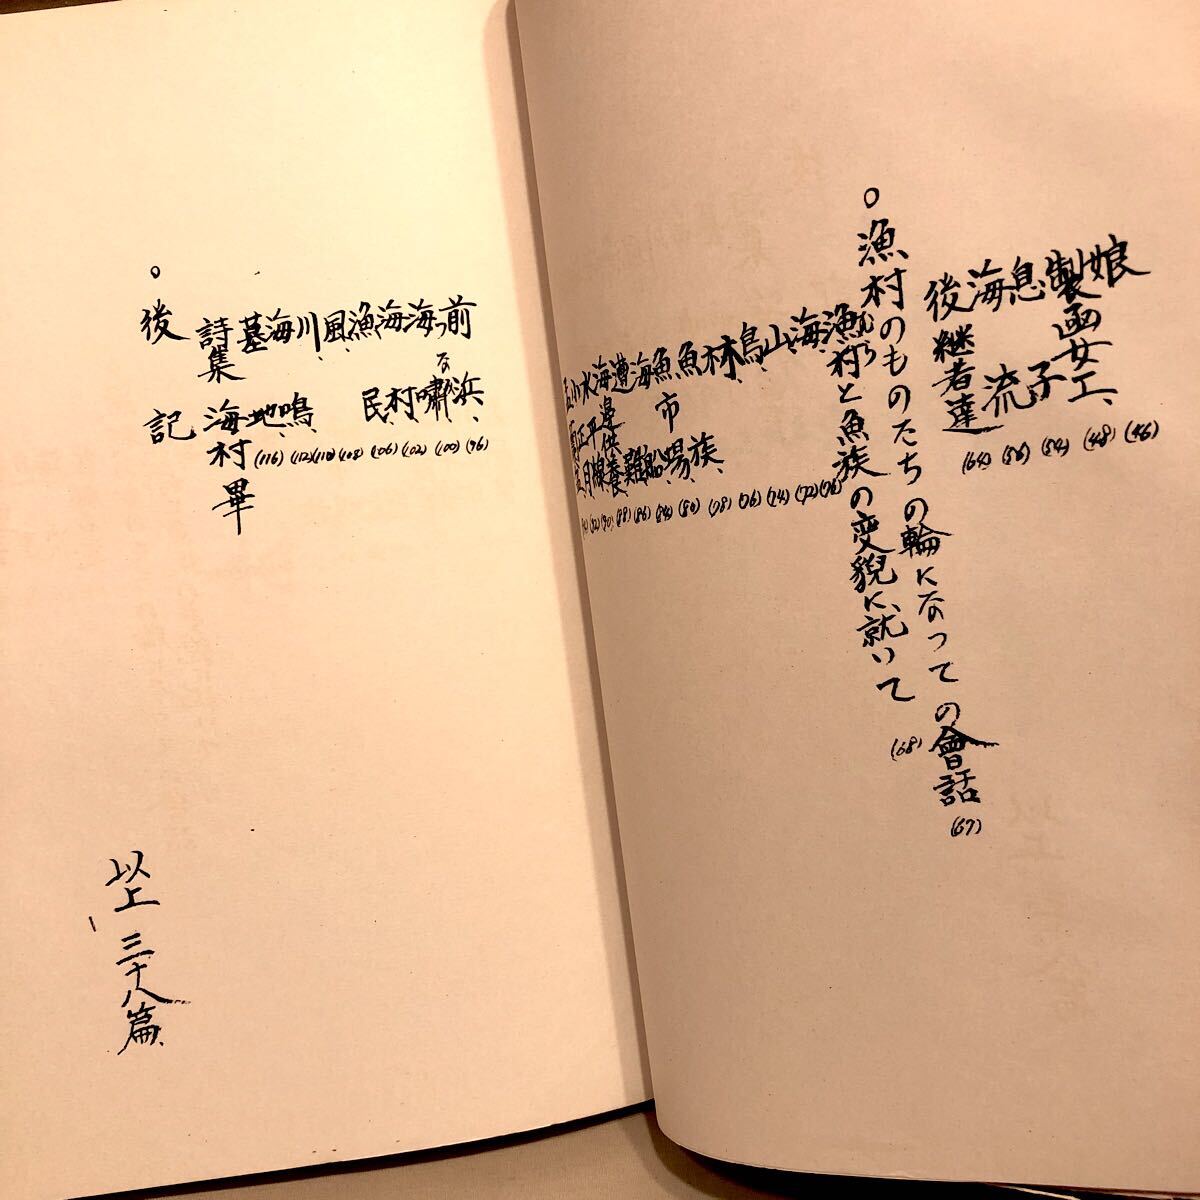 娘 (46)
製函女工 (48)
息子 (54)
海流 (56)
後継者達 (64)
○漁村のものたちの輪になっての會話 (67)
漁村と魚族の変貌に就いて (68)
むら
海 (70)
山 (72)
鳥 (74)
林 (76)
魚族 (78)
魚市場 (80)
海 (84)
遭難 (86)
海邊供養 (88)
水平線 (90)
小正月 (92)
前浜 (96)
海嘯 (100)
つなみ
海村 (102)
漁民 (106)
風 (108)
川 (110)
海鳴 (112)
墓地 (116)
詩集 海村 畢
○後記
以上 三十八篇